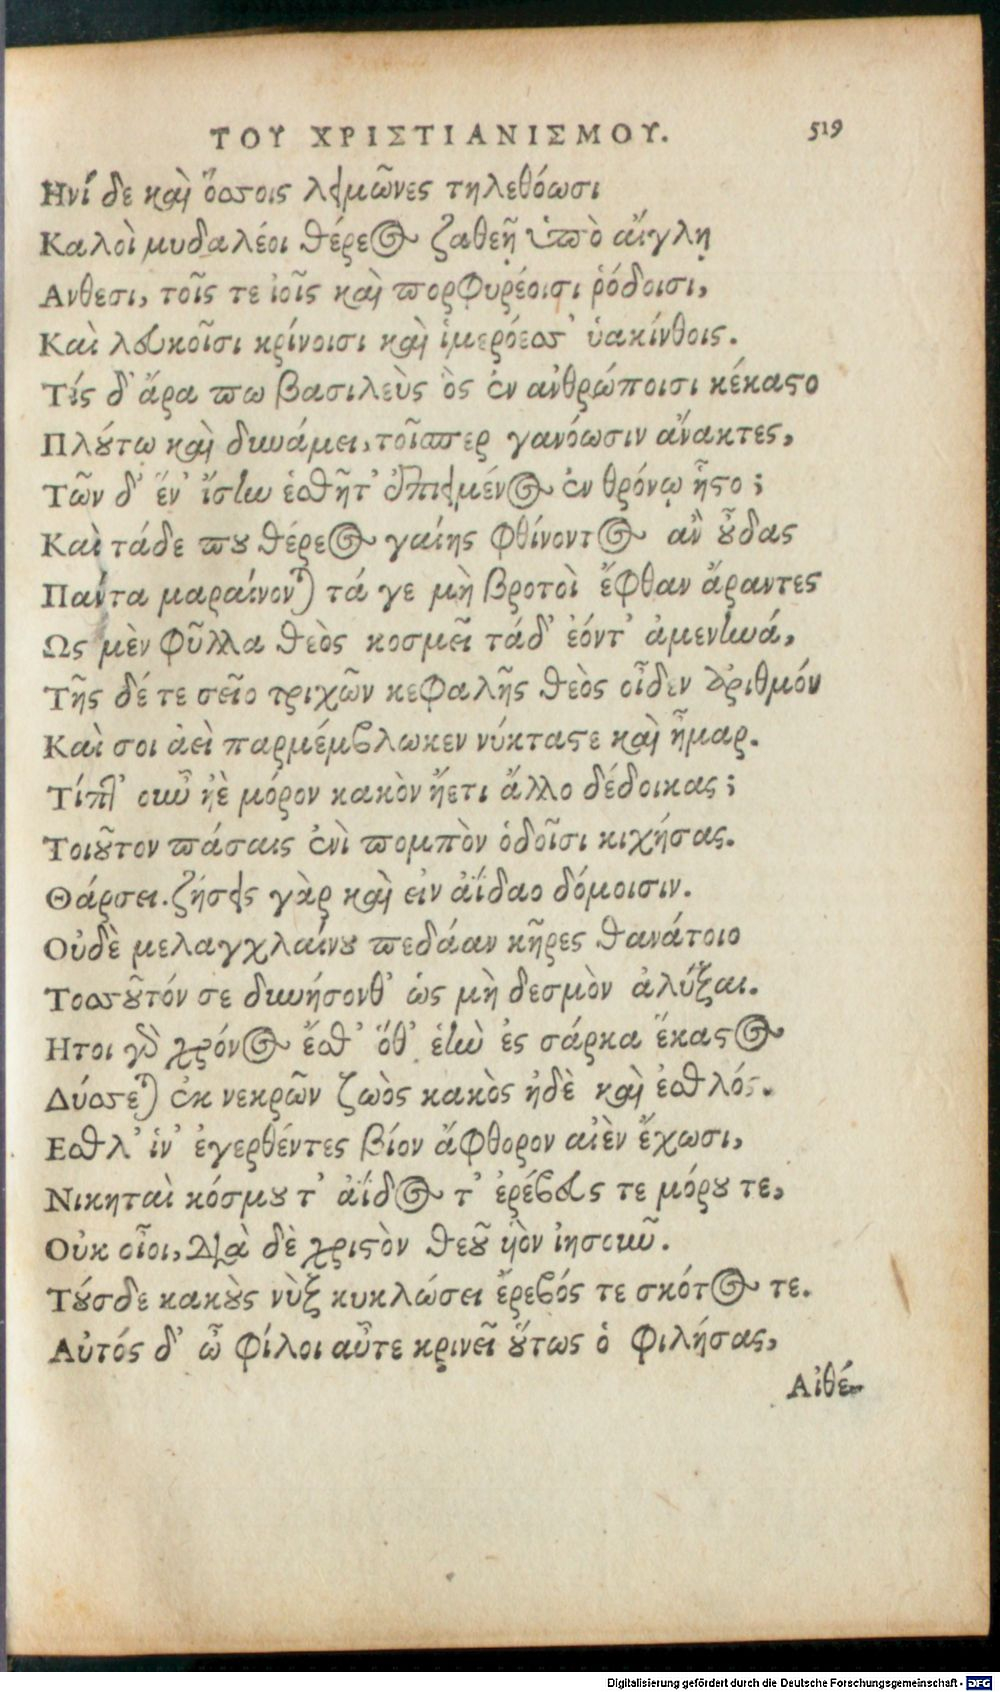 ΤΟΥ ΧΡΙΣΤΙΑΝΙΣΜΟΥ. 519
Ηνί δε καὶ ὅσσοις λειμῶνες τηλεθόωσι
Καλοὶ μυδαλέοι θέρεος ζαθεῇ ὑπὸ αἴγλῃ
Ανθεσι, τοῖς τε ἰοῖς καὶ πορφυρέοισι ῥόδοισι,
Καὶ λευκοῖσι κρίνοισι καὶ ἱμερόεσσ' ὑακίνθοις.
Τίς δ' ἄρα πω βασιλεὺς ὃς ἐν ἀνθρώποισι κέκαστο
Πλούτω καὶ δυνάμει, τοῖσπερ γανόωσιν ἄνακτες,
Τῶν δ' ἕν' ἴσην ἐσθῆτ' ἐπιειμένος ἐν θρόνῳ ἧστο;
Καὶ τάδε που θέρεος γαίης φθίνοντος ἂν οὖδας
Πάντα μαραίνονται τά γε μὴ βροτοὶ ἔφθαν ἄραντες
Ως μὲν φῦλλα θεὸς κοσμεῖ τάδ' ἐόντ' ἀμενηνά,
Τῆς δέ τε σεῖο τριχῶν κεφαλῆς θεὸς οἶδεν ἀριθμόν
Καὶ σοι ἀεὶ παρμέμβλωκεν νύκταστε καὶ ἦμαρ.
Τίπτ' οὖν ἠὲ μόρον κακὸν ἤετι ἄλλο δέδοικας;
Τοιοῦτον πάσαις ἐνὶ πομπὸν ὁδοῖσι κιχήσας.
Θάρσει. ζήσεις γὰρ καὶ εἰν ἀΐδαο δόμοισιν.
Οὐδὲ μελαγχλαίνου πεδάαν κῆρες θανάτοιο
Τοσσοῦτόν σε δυνήσονθ' ὡς μὴ δεσμὸν ἀλύξαι.
Ητοι γὰρ χρόνος ἔσθ' ὅθ' ἑὴν ἐς σάρκα ἕκαστος
Δύσσεται ἐκ νεκρῶν ζωὸς κακὸς ἠδὲ καὶ ἐσθλός.
Εσθλ' ἱν' ἐγερθέντες βίον ἄφθορον αἰὲν ἔχωσι,
Νικηταὶ κόσμου τ' ἀΐδος τ' ἐρέβευς τε μόρου τε,
Οὐκ οἶοι, διὰ δὲ χριστὸν θεοῦ υἱὸν ἰησοῦν.
Τούσδε κακοὺς νὺξ κυκλώσει ἔρεβός τε σκότος τε.
Αὐτός δ' ὦ φίλοι αὖτε κρινεῖ οὕτως ὁ φιλήσας,
Αἰθέ-
Digitalisierung gefördert durch die Deutsche Forschungsgemeinschaft - DFG